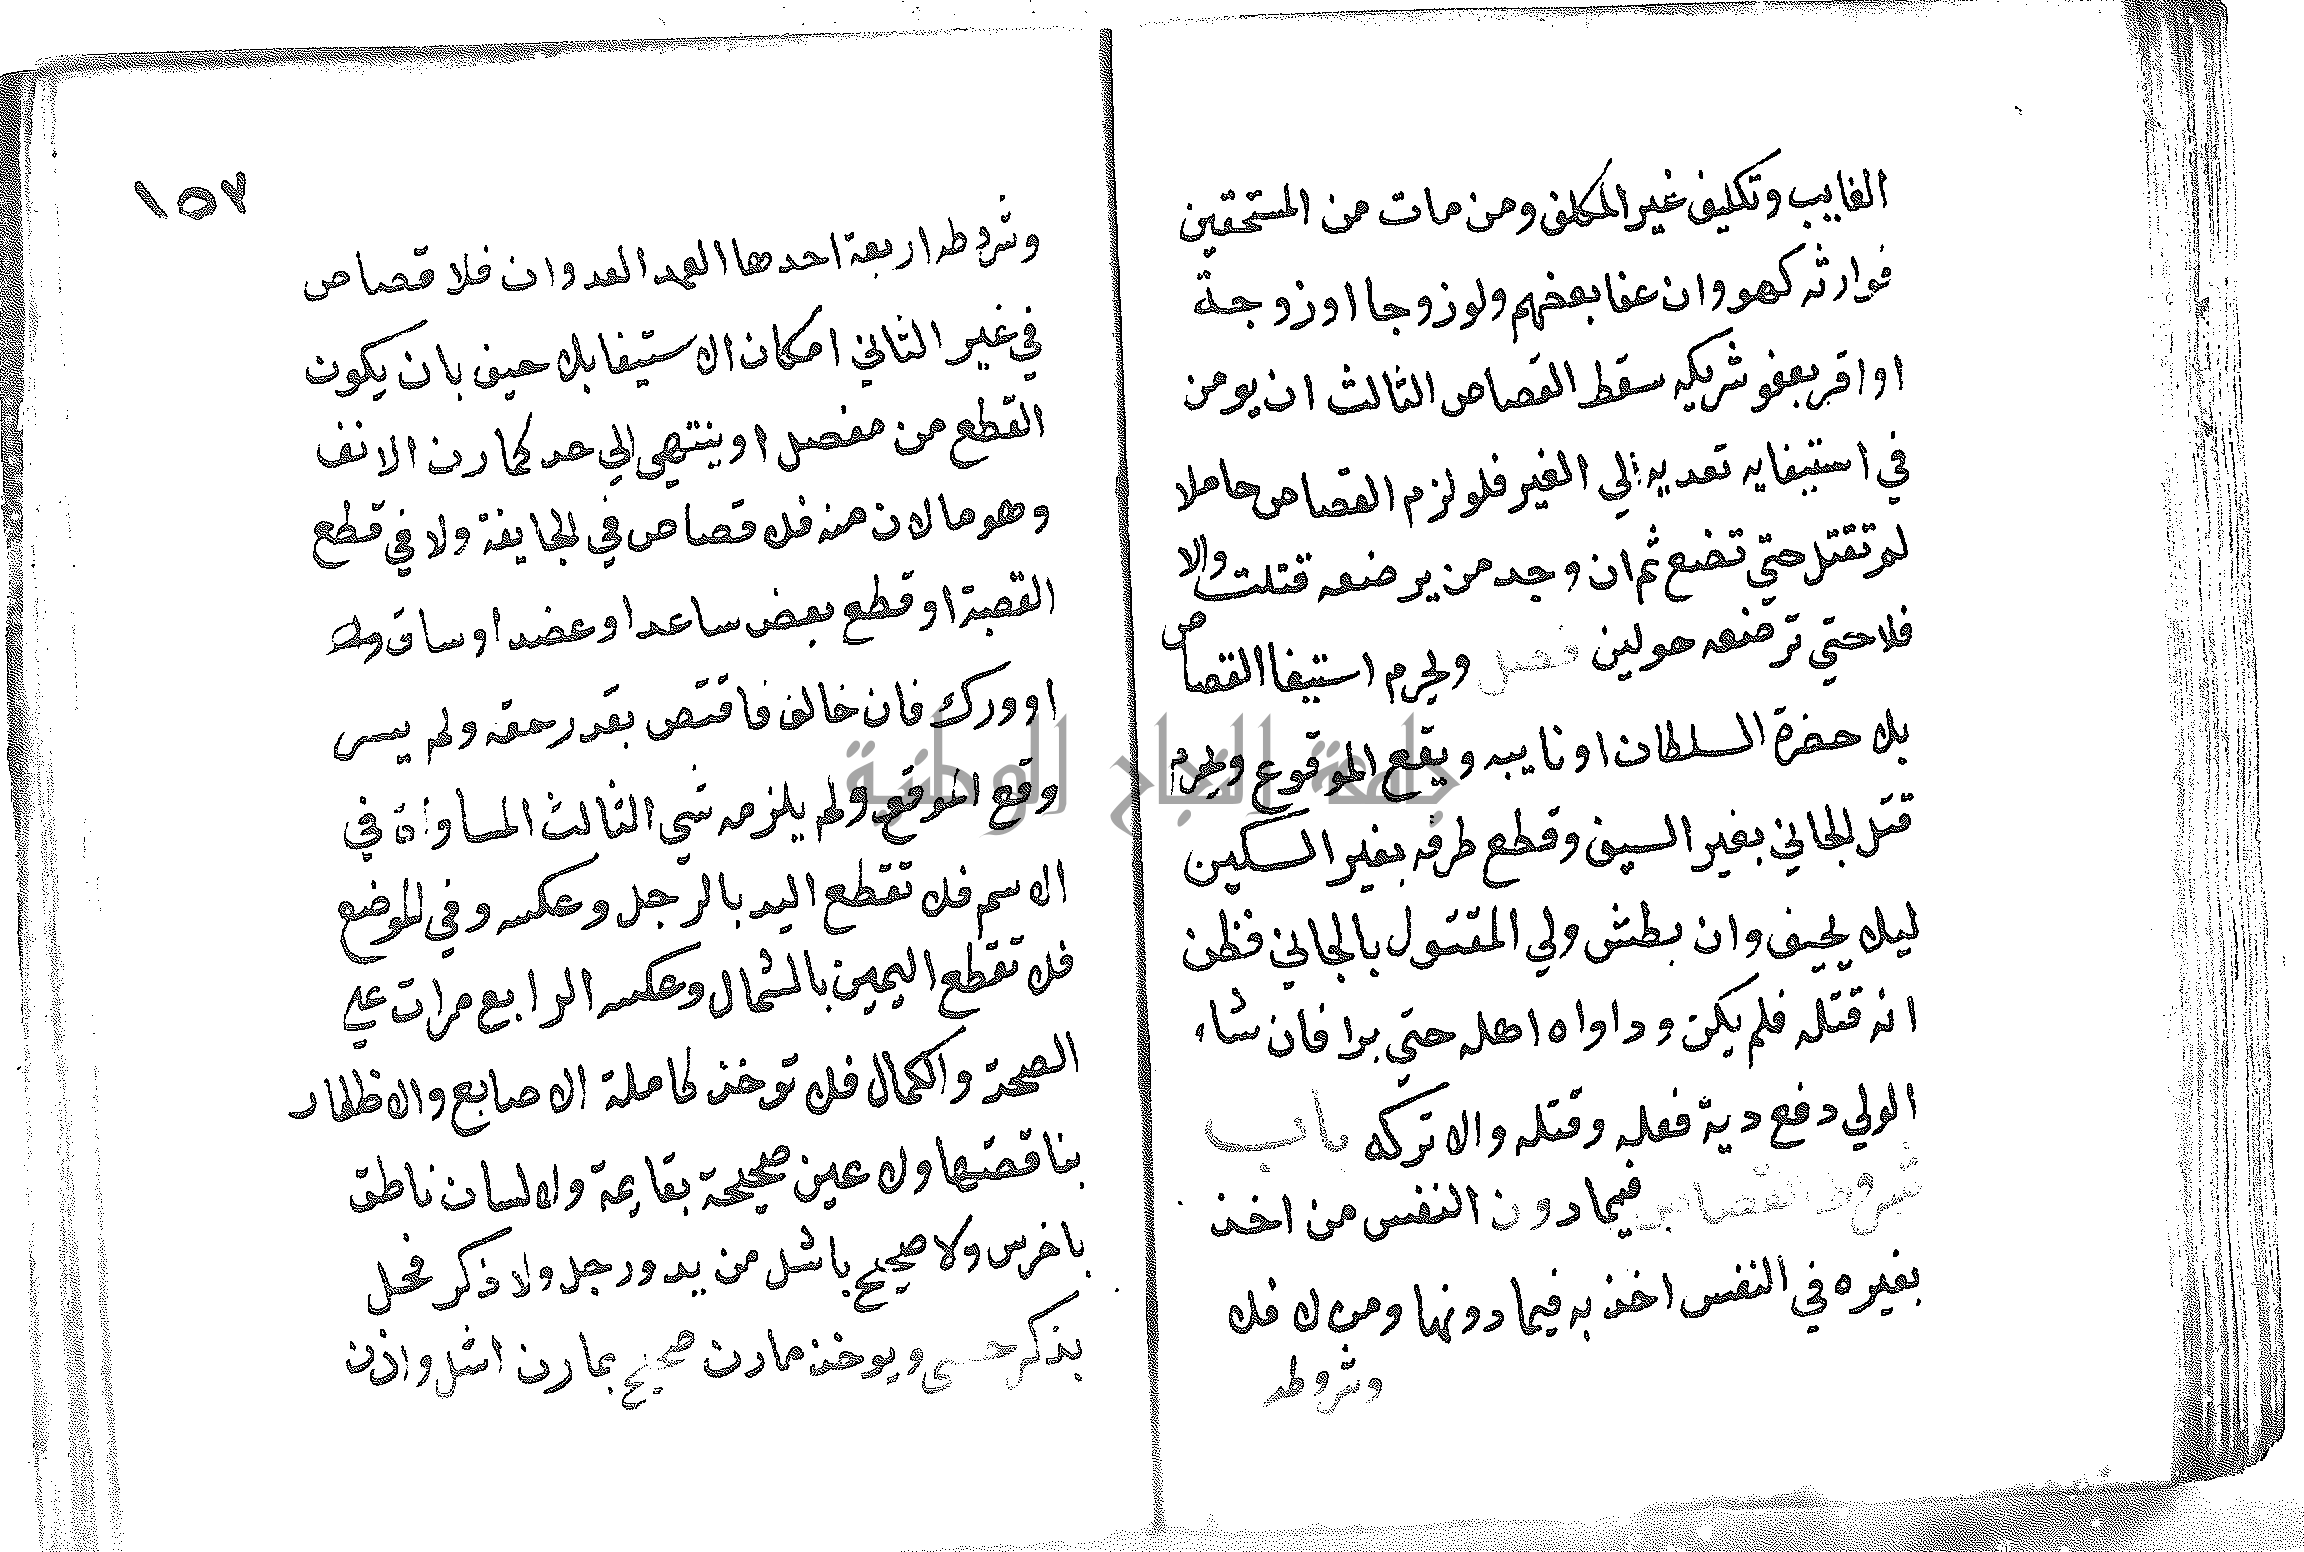 الغايب وتكليف غير المكلف ومن مات من المستحقين
فوارثه كهو وان عفا بعضهم ولو زوجا او زوجة
او اقر بعفو شريكه سقط القصاص الثالث ان يومن
في استيفايه تعديه الي الغير فلو لزم القصاص حاملا
لم تقتل حتي تضع ثم ان وجد من يرضعه قتلت والا
فلا حتي ترضعه حولين فصل ويحرم استيفا القصاص
بلا حضرة السلطان او نايبه ويقع الموقوع ويحرم
قتل الجاني بغير السيف وقطع طرفه بغير السكين
ليلا يحيف وان بطش ولي المقتول بالجاني فظن
انه قتله فلم يكن وداواه اهله حتي برا فان شاء
الولي دفع دية فعله وقتله والا تركه باب
شروط القصاص فيما دون النفس من اخذ
بغيره في النفس اخذ به فيما دونها ومن لا فلا
وشروطه
١٥٧
وشروطه اربعة احدها العمد العدوان فلا قصاص
في غير الثاني امكان الاستيفا بلا حيف بان يكون
القطع من مفصل او ينتهي الي حد كمارن الانف
وهو ما لان منه فلا قصاص في الجايفة ولا في قطع
القصبة او قطع بعض ساعد او عضد او ساق
او ورك فان خالف فاقتص بقدر حقه ولم يسر
وقع الموقع ولم يلزمه شي الثالث المساواة في
الاسم فلا تقطع اليد بالرجل وعكسه وفي الموضع
فلا تقطع اليمين بالشمال وعكسه الرابع مرات علي
الصحة والكمال فلا توخذ كاملة الاصابع والاظفار
بناقصتها ولا عين صحيحة بقايمة ولا لسان ناطق
باخرس ولا صحيح باشل من يد ورجل ولا ذكر فحل
بذكر خصي ويوخذ مارن صحيح بمارن اشل واذن
جامعة النجاح الوطنية